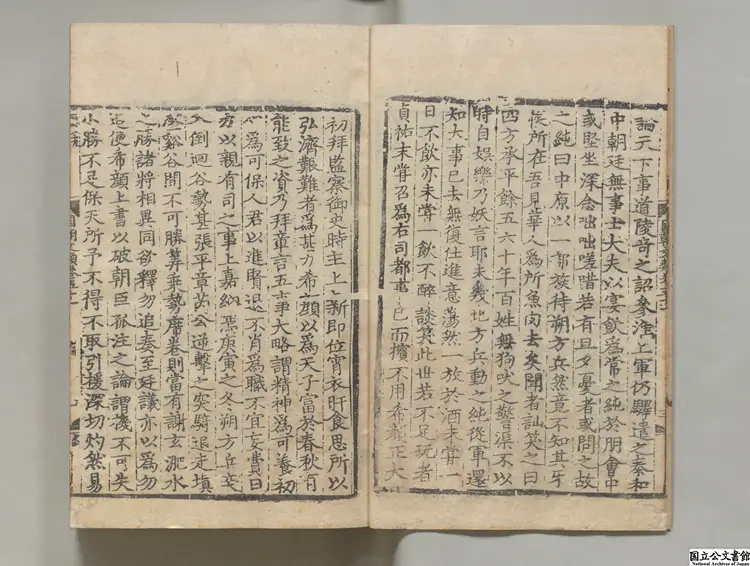 論元下事道陵奇之詔參淮上軍仍驛遣之泰和
中朝廷無事士大夫以宴飲爲常之純於朋會中
或堅坐深念咄咄嗟唶若有旦夕憂者或問之故
之純曰中原以一部族待朔方兵然竟不知其牙
帳所在吾見華人爲所魚肉去矣聞者訕笑之曰
四方承平餘五六十年百姓無狗吠之警渠不以
時自娛樂乃妖言耶未幾北方兵動之純從軍還
知大事已去無復仕進意蕩然一放於酒未嘗一
日不飲亦未嘗一飲不醉談笑此世若不足玩者
貞祐末嘗召爲右司都事已而擯不用希顏正大
初拜監察御史時主上新即位宵衣旰食思所以
弘濟艱難者爲甚力希顏以爲天子富於春秋有
能致之資乃拜章言五事大略謂精神爲可養初
心爲可保人君以進賢退不肖爲職不宜妄費日
力以親有司之事上嘉納焉庚寅之冬朔方兵突
入倒迴谷勢甚張平章芮公逆擊之突騎退走填
壓谿谷間不可勝筭乘勢席卷則當有謝玄淝水
之勝諸將相異同欲釋勿追奏至廷議亦以爲勿
追便希顏上書以破朝臣孤注之論謂機不可失
小勝不足保天所予不得不取引援深切灼然易
国立公文書館
National Archives of Japan